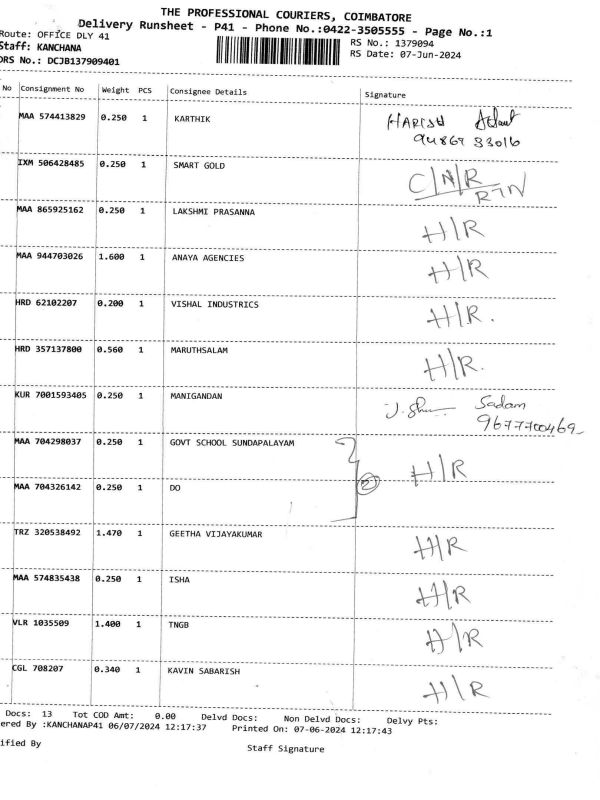 THE PROFESSIONAL COURIERS, COIMBATORE
Delivery Runsheet - P41 - Phone No.:0422-3505555 - Page No.:1
Route: OFFICE DLY 41
RS No.: 1379094
Staff: KANCHANA
RS Date: 07-Jun-2024
DRS No.: DCJB137909401
No Consignment No Weight PCS Consignee Details Signature
MAA 574413829 0.250 1 KARTHIK HARISH
94867 33016
IXM 506428485 0.250 1 SMART GOLD C/N/R
RTN
MAA 865925162 0.250 1 LAKSHMI PRASANNA H/R
MAA 944703026 1.600 1 ANAYA AGENCIES H/R
HRD 62102207 0.200 1 VISHAL INDUSTRICS H/R.
HRD 357137800 0.560 1 MARUTHSALAM H/R.
KUR 7001593405 0.250 1 MANIGANDAN Sadam
9677700469
MAA 704298037 0.250 1 GOVT SCHOOL SUNDAPALAYAM H/R
MAA 704326142 0.250 1 DO 2
TRZ 320538492 1.470 1 GEETHA VIJAYAKUMAR H/R
MAA 574835438 0.250 1 ISHA H/R
VLR 1035509 1.400 1 TNGB H/R
CGL 708207 0.340 1 KAVIN SABARISH H/R
Docs: 13 Tot COD Amt: 0.00 Delvd Docs: Non Delvd Docs: Delvy Pts:
ered By :KANCHANAP41 06/07/2024 12:17:37 Printed On: 07-06-2024 12:17:43
ified By Staff Signature